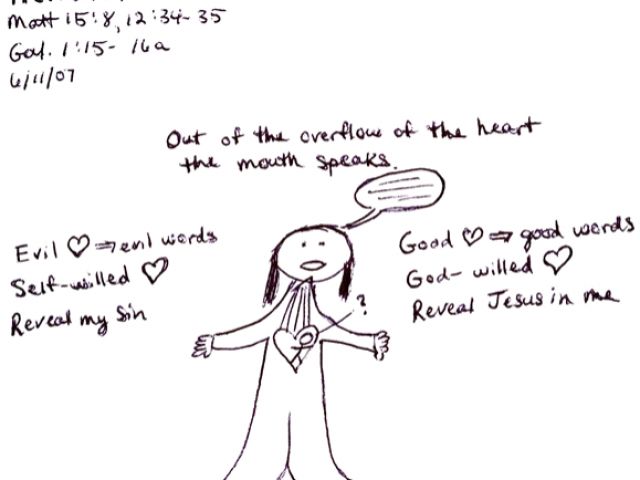 Matt 15:8, 12:34-35
Gal. 1:15-16a
6/11/07
Out of the overflow of the heart
the mouth speaks.
Evil ♡ ⇒ evil words
Self-willed ♡
Reveal my sin
Good ♡ ⇒ good words
God-willed ♡
Reveal Jesus in me
?